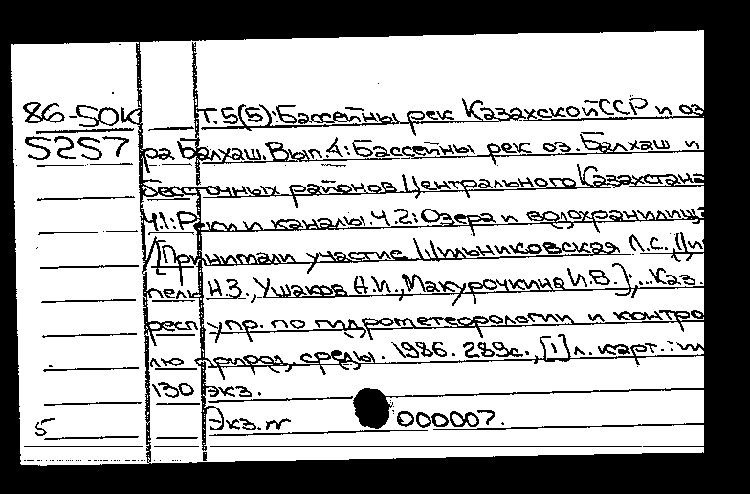 86-50к Т.5(5):Бассейны рек Казахской ССР и оз
5257 ра Балхаш.Вып.4:Бассейны рек оз.Балхаш и
бессточных районов Центрального Казахстана
Ч.1:Реки и каналы.Ч.2:Озера и водохранилища
/[Принимали участие Шильниковская Л.С.,
пель Н.З.,Ушаков А.И.,Макурочкина И.В.];...Каз.
респ.упр. по гидрометеорологии и контро
лю природ. среды. 1986. 289с.,[1]л. карт.:ил
130 экз.
5 Экз.№ 000007.